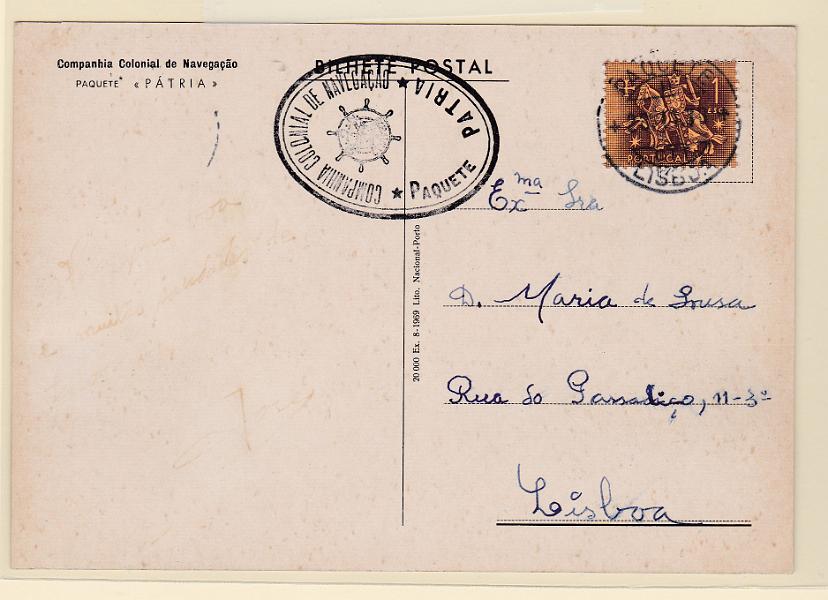 Companhia Colonial de Navegação
PAQUETE « PÁTRIA »
BILHETE POSTAL
COMPANHIA COLONIAL DE NAVEGAÇÃO ★ PAQUETE PATRIA ★
1
ESC.
PORTUGAL
PAQUETE
LISBOA
Exma Sra
D. Maria de Sousa
Rua do Passadiço, 11-3º
Lisboa
20 000 Ex. 8-1969 Lito. Nacional-Porto
saudades de